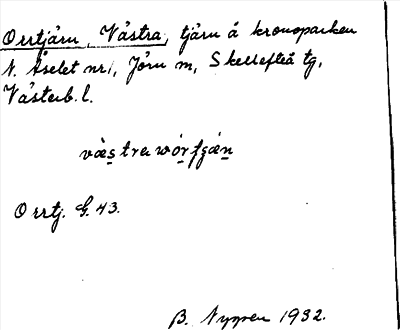 Orrtjärn, Västra, tjärn å kronoparken
N. Åselet nr 1, Jörn sn, Skellefteå tg,
Västerb. l.
Orrtj. G. 43.
B. Nyppen 1932.